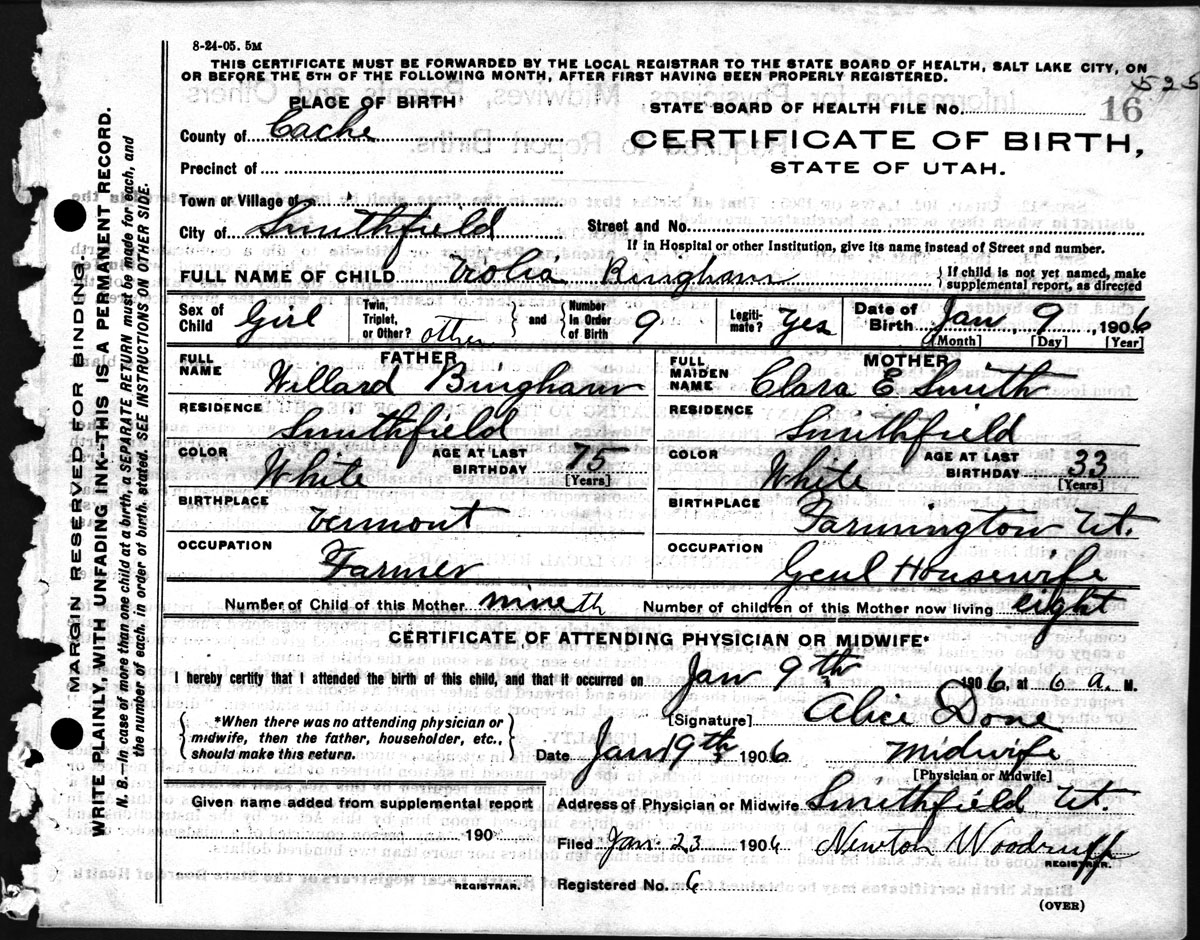 8-24-05. 5M
THIS CERTIFICATE MUST BE FORWARDED BY THE LOCAL REGISTRAR TO THE STATE BOARD OF HEALTH, SALT LAKE CITY, ON
OR BEFORE THE 5TH OF THE FOLLOWING MONTH, AFTER FIRST HAVING BEEN PROPERLY REGISTERED.
525
PLACE OF BIRTH
STATE BOARD OF HEALTH FILE No. 16
County of Cache
CERTIFICATE OF BIRTH,
Precinct of
STATE OF UTAH.
Town or Village of
City of Smithfield
Street and No.
If in Hospital or other Institution, give its name instead of Street and number.
FULL NAME OF CHILD Bingham
{ If child is not yet named, make
supplemental report, as directed
Sex of Child Girl
Twin, Triplet, or Other? other } and { Number in Order of Birth 9
Legiti-mate? Yes
Date of Birth Jan 9, 1906
[Month] [Day] [Year]
FATHER
FULL NAME Willard Bingham
RESIDENCE Smithfield
COLOR White AGE AT LAST BIRTHDAY 75 [Years]
BIRTHPLACE Vermont
OCCUPATION Farmer
MOTHER
FULL MAIDEN NAME Clara E Smith
RESIDENCE Smithfield
COLOR White AGE AT LAST BIRTHDAY 33 [Years]
BIRTHPLACE Farmington Ut.
OCCUPATION Genl Housewife
Number of Child of this Mother nineth Number of children of this Mother now living eight
CERTIFICATE OF ATTENDING PHYSICIAN OR MIDWIFE*
I hereby certify that I attended the birth of this child, and that it occurred on Jan 9th 1906 at 6 a. M.
{ *When there was no attending physician or
midwife, then the father, householder, etc.,
should make this return. }
[Signature] Alice Done
Date Jan 19th 1906 Midwife
[Physician or Midwife]
Given name added from supplemental report
190
REGISTRAR.
Address of Physician or Midwife Smithfield Ut.
Filed Jan. 23 1906 Newton Woodruff
REGISTRAR.
Registered No. 6
(OVER)
MARGIN RESERVED FOR BINDING.
WRITE PLAINLY, WITH UNFADING INK-THIS IS A PERMANENT RECORD.
N. B.—In case of more than one child at a birth, a SEPARATE RETURN must be made for each, and
the number of each, in order of birth, stated. SEE INSTRUCTIONS ON OTHER SIDE.